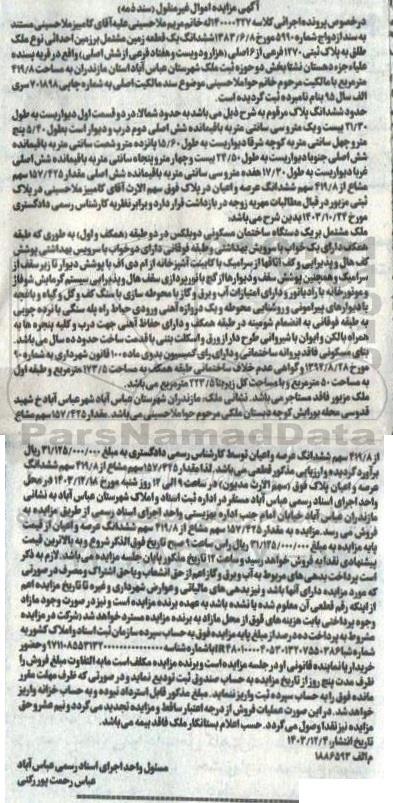 آگهی مزایده اموال غیرمنقول (سند ذمه)
درخصوص پرونده اجرائی کلاسه ۱۴۰۰۰۰۲۲۷ له خانم مریم ملاحسینی علیه آقای کامبیز ملاحسینی مستند
به سند ازدواج شماره ۵۹۹۰ مورخ ۱۳۸۳/۶/۸ ششدانگ یک قطعه زمین مشتمل بر زمین احداثی نوع ملک
طلق به پلاک ثبتی ۱۲۷۰ فرعی از ۶ اصلی (هزار و دویست و هفتاد فرعی از شش اصلی) واقع در قریه پسنده
علیا جزء دهستان نشتا بخش دو حوزه ثبت ملک شهرستان عباس آباد استان مازندران به مساحت ۴۱۹/۸
مترمربع با مالکیت مرحوم خانم حوا ملاحسینی موضوع سند مالکیت اصلی به شماره چاپی ۷۰۱۸۹۸ سری
الف سال ۹۵ بنام نامبرده ثبت گردیده است.
حدود ششدانگ پلاک مرقوم به شرح ذیل می باشد به حدود شمالا: در دو قسمت اول دیواریست به طول
۲۱/۳۰ بیست و یک متر و سی سانتی متر به باقیمانده شش اصلی دوم درب و دیوار است بطول ۵/۴۰ پنج
متر و چهل سانتی متر به کوچه شرقا دیواریست به طول ۱۵/۶۰ پانزده متر و شصت سانتی متر به باقیمانده
شش اصلی جنوبا دیواریست به طول ۲۴/۵۰ بیست و چهار متر و پنجاه سانتی متر به باقیمانده شش اصلی
غربا دیواریست به طول ۱۷/۳۰ هفده متر و سی سانتی متر به باقیمانده شش اصلی مقدار ۱۵۷/۴۲۵ سهم
مشاع از ۴۱۹/۸ سهم ششدانگ عرصه و اعیان در پلاک فوق سهم الارث آقای کامبیز ملاحسینی در پلاک
ثبتی مزبور در قبال مطالبات مهریه زوجه در بازداشت قرار دارد و برابر نظریه کارشناس رسمی دادگستری
مورخ ۱۴۰۳/۱۰/۲۴ بدین شرح می باشد:
ملک مشتمل بر یک دستگاه ساختمان مسکونی دوبلکس در دو طبقه (همکف و اول) به طوری که طبقه
همکف دارای یک خواب با سرویس بهداشتی و طبقه فوقانی دارای دو خواب با سرویس بهداشتی پوشش
کف هال و پذیرایی و کف اتاقها از سرامیک با کابینت آشپزخانه از ام دی اف با پوشش دیوار تا زیر سقف از
سرامیک و همچنین پوشش سقف و دیوارها از گچ با نورپردازی سقف هال و پذیرایی سیستم گرمایش شوفاژ
و موتورخانه با رادیاتور و دارای امتیازات آب و برق و گاز با محوطه سازی با سنگ کف و گل و گیاه و باغچه
با دیوارهای پیرامونی و روشنایی محوطه و یک دروازه آهنی ورودی حیاط راه پله سنگی با نرده چوبی
به طبقه فوقانی به انضمام شومینه در طبقه همکف و دارای حفاظ آهنی جهت درب و کلیه پنجره ها به
همراه بالکن و ایوان با شیروانی طرح دار از ورق و اسکلت بتنی با قدمت ساخت حدود ده سال می باشد.
بنای مسکونی فاقد پروانه ساختمانی و دارای رای کمیسیون بدوی ماده ۱۰۰ قانون شهرداری به شماره ۹۰
مورخ ۱۳۹۲/۸/۲۸ و گواهی عدم خلافی ساختمانی طبقه همکف به مساحت ۱۷۳/۵ مترمربع و طبقه اول
به مساحت ۵۰ مترمربع و با مساحت کل زیربنا ۲۲۳/۵ مترمربع می باشد.
ملک مزبور فاقد مستاجر می باشد. نشانی ملک: مازندران شهرستان عباس آباد شهر عباس آباد خ شهید
قدوسی محله بورایش کوچه دبستان ملکی مرحوم حوا ملاحسینی می باشد. مقدار ۱۵۷/۴۲۵ سهم مشاع
از ۴۱۹/۸ سهم ششدانگ عرصه و اعیان توسط کارشناس رسمی دادگستری به مبلغ ۳۱/۱۲۵/۰۰۰/۰۰۰ ریال
برآورد گردیده و ارزیابی مذکور قطعی می باشد. لذا مقدار ۱۵۷/۴۲۵ سهم مشاع از ۴۱۹/۸ سهم ششدانگ
عرصه و اعیان پلاک فوق (سهم الارث مدیون) در ساعت ۹ الی ۱۲ روز شنبه مورخ ۱۴۰۳/۱۲/۱۸ در محل
واحد اجرای اسناد رسمی عباس آباد مستقر در اداره ثبت اسناد و املاک شهرستان عباس آباد به نشانی
مازندران عباس آباد خیابان امام جنب اداره بهزیستی واحد اجرای اسناد رسمی از طریق مزایده به
فروش می رسد. مزایده به مقدار ۱۵۷/۴۲۵ سهم مشاع از ۴۱۹/۸ سهم ششدانگ عرصه و اعیان از قیمت
پایه مزایده به مبلغ ۳۱/۱۲۵/۰۰۰/۰۰۰ ریال راس ساعت ۹ صبح تاریخ فوق الذکر شروع و به بالاترین قیمت
پیشنهادی نقدا به فروش خواهد رسید و ساعت ۱۲ تاریخ مذکور پایان جلسه مزایده می باشد. لازم به ذکر
است پرداخت بدهی های مربوط به آب و برق و گاز اعم از حق انشعاب و یا حق اشتراک و مصرف در صورتی
که مورد مزایده دارای آنها باشد و نیز بدهی های مالیاتی و عوارض شهرداری و غیره تا تاریخ مزایده اعم
از اینکه رقم قطعی آن معلوم شده یا نشده باشد به عهده برنده مزایده است و نیز در صورت وجود مازاد
وجوه پرداختی بابت هزینه های فوق از محل مازاد به برنده مزایده مسترد خواهد شد، شرکت در مزایده
مشروط به پرداخت ده درصد از مبلغ پایه مزایده فوق به حساب سپرده سازمان ثبت اسناد و املاک کشور به
خریدار یا نماینده قانونی او در جلسه مزایده است و برنده مزایده مکلف است مابه التفاوت مبلغ فروش را
ظرف مدت پنج روز از تاریخ مزایده به حساب صندوق ثبت تودیع نماید و در صورتی که ظرف مهلت مقرر
مانده فوق را به حساب سپرده ثبت واریز ننماید. مبلغ مذکور قابل استرداد نبوده و به حساب خزانه واریز
خواهد شد. در این صورت عملیات فروش از درجه اعتبار ساقط و مزایده تجدید می گردد و نیم عشر و حق
مزایده نیز نقدا وصول می گردد. حسب اعلام بستانکار ملک فاقد بیمه می باشد.
تاریخ انتشار: ۱۴۰۳/۱۲/۴
م الف ۱۸۸۶۵۹۳
مسئول واحد اجرای اسناد رسمی عباس آباد
عباس رحمت پور رکنی
ParsNamadData